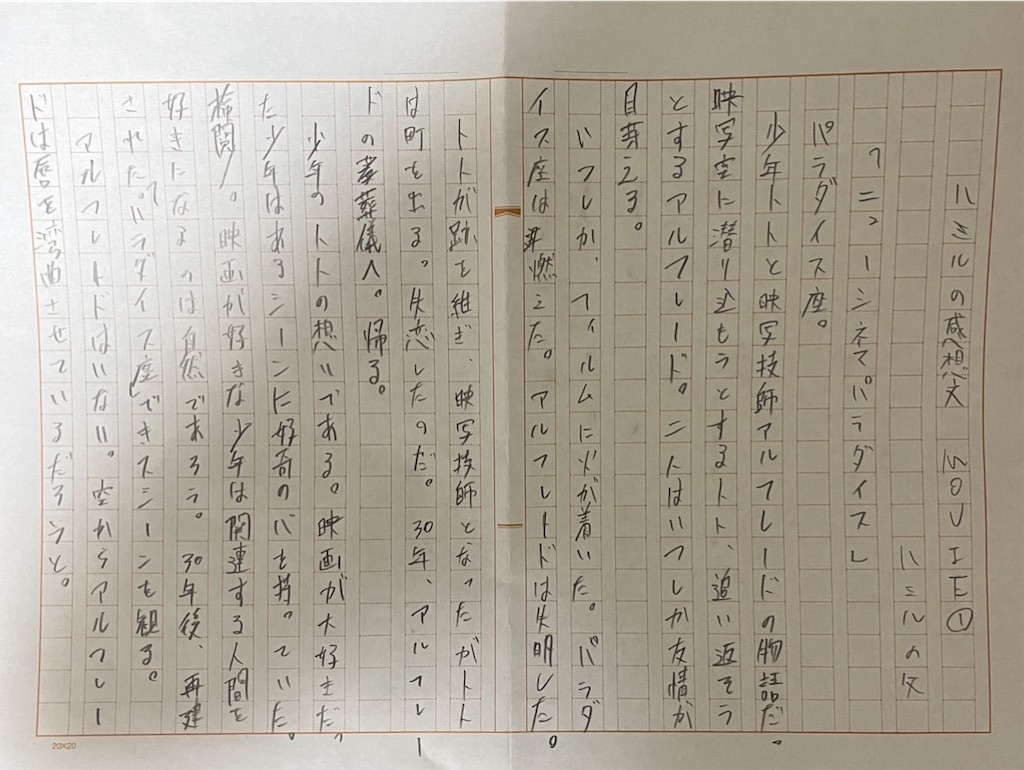 ハミルの感想文 MOVIE①
ハミルの父
「ニューシネマパラダイス」
パラダイス座。
少年トトと映写技師アルフレードの物語だ。
映写室に潜り込もうとするトト、追い返そう
とするアルフレード。二人はいつしか友情が
目芽える。
いつしか、フィルムに火が着いた。パラダ
イス座は燃えた。アルフレードは失明した。
トトが跡を継ぎ、映写技師となったがトト
は町を出る。失恋したのだ。30年、アルフレー
ドの葬儀へ。帰る。
少年のトトの想いである。映画が大好きだっ
た少年はあるシーンに好奇の心を持っていた。
検閲。映画が好きな少年は関連する人間を
好きになるのは自然であろう。30年後、再建
された。「パラダイス座」でキスシーンを観る。
アルフレードはいない。空からアルフレー
ドは唇を湾曲させているだろうと。
20X20